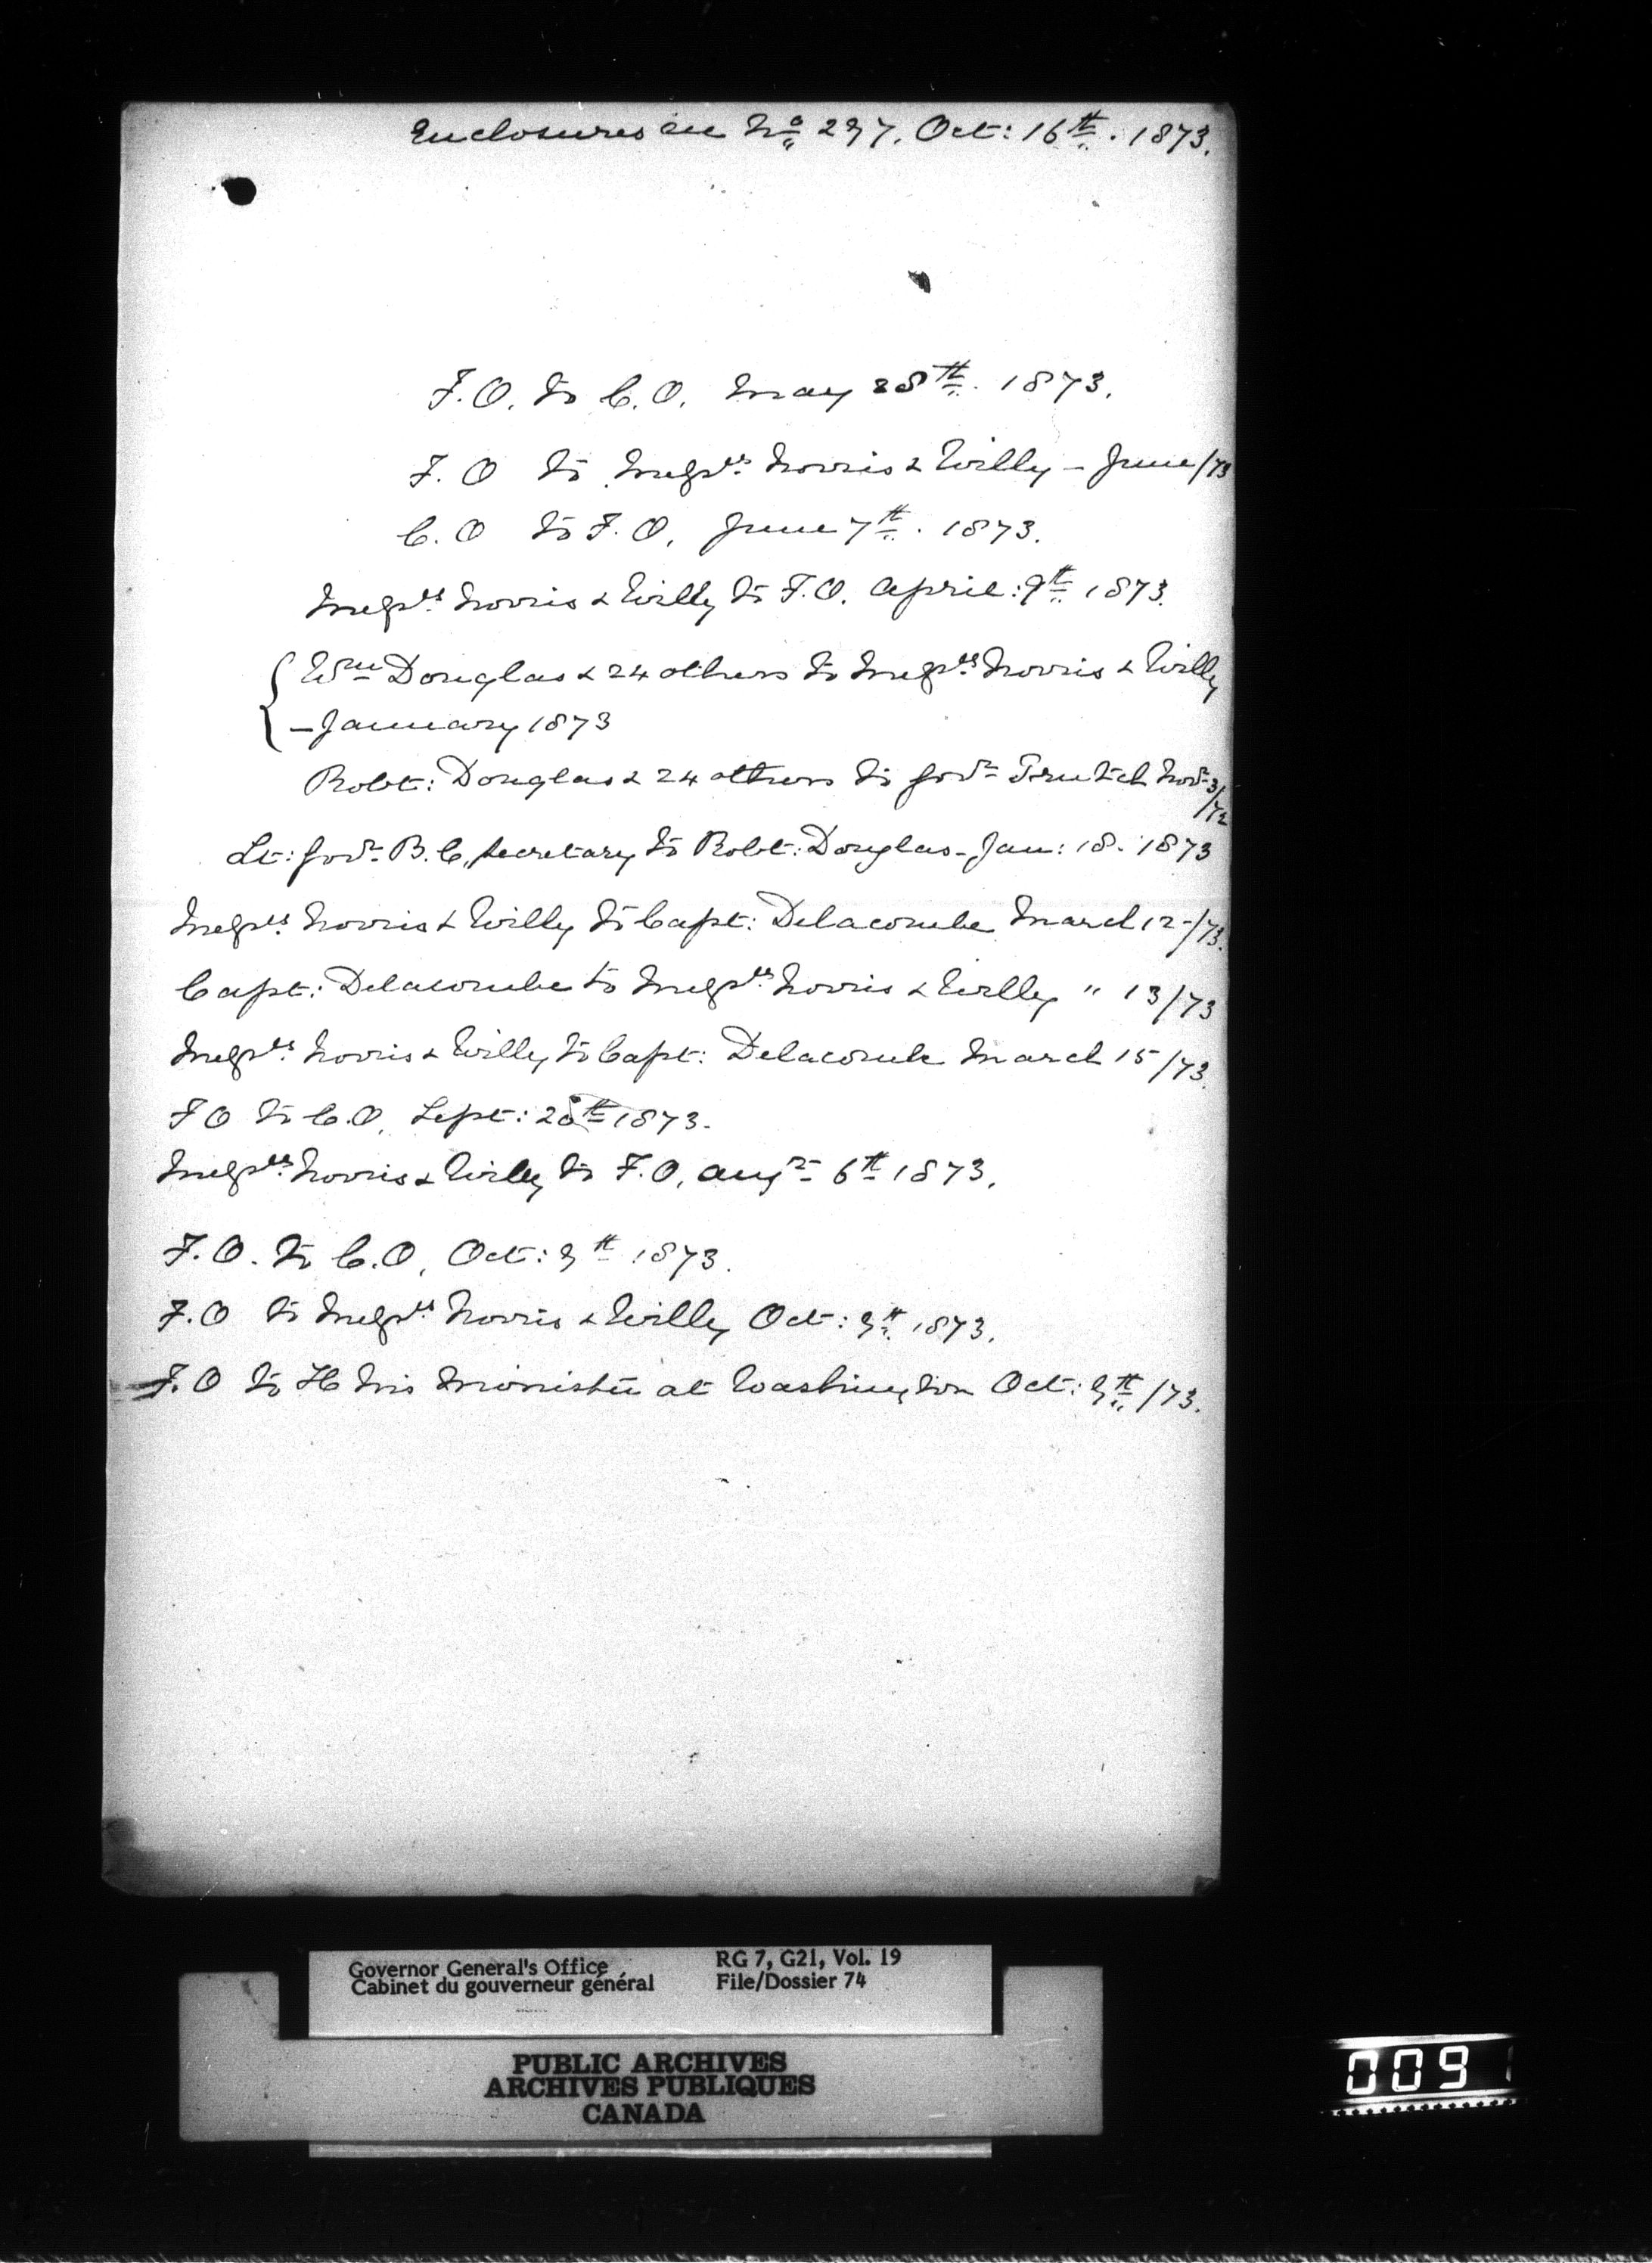 Enclosures in No 297. Oct: 16th. 1873.
F.O. to C.O. May 28th. 1873.
F.O to Messrs Norris & Willy - June/73
C.O to F.O. June 7th. 1873.
Messrs Norris & Willy to F.O. April: 9th 1873.
Wm Douglas & 24 others to Messrs Norris & Willy
- January 1873
Robt: Douglas & 24 others to Govr Trutch Novr 3/72
Lt: Govr B.C. Secretary to Robt: Douglas - Jan: 18. 1873
Messrs Norris & Willy to Capt: Delacombe March 12-/73.
Capt: Delacombe to Messrs Norris & Willy " 13/73
Messrs Norris & Willy to Capt: Delacombe March 15/73.
F O to C.O. Sept: 1873.
Messrs Norris & Willy to F.O. 6th 1873.
F.O. to C.O. Oct: 9th 1873.
F.O to Messrs Norris & Willy Oct: 9th. 1873.
F.O to H Ms Minister at Washington Oct: 9th/73.
Governor General's Office
Cabinet du gouverneur général
RG 7, G21, Vol. 19
File/Dossier 74
PUBLIC ARCHIVES
ARCHIVES PUBLIQUES
CANADA
009